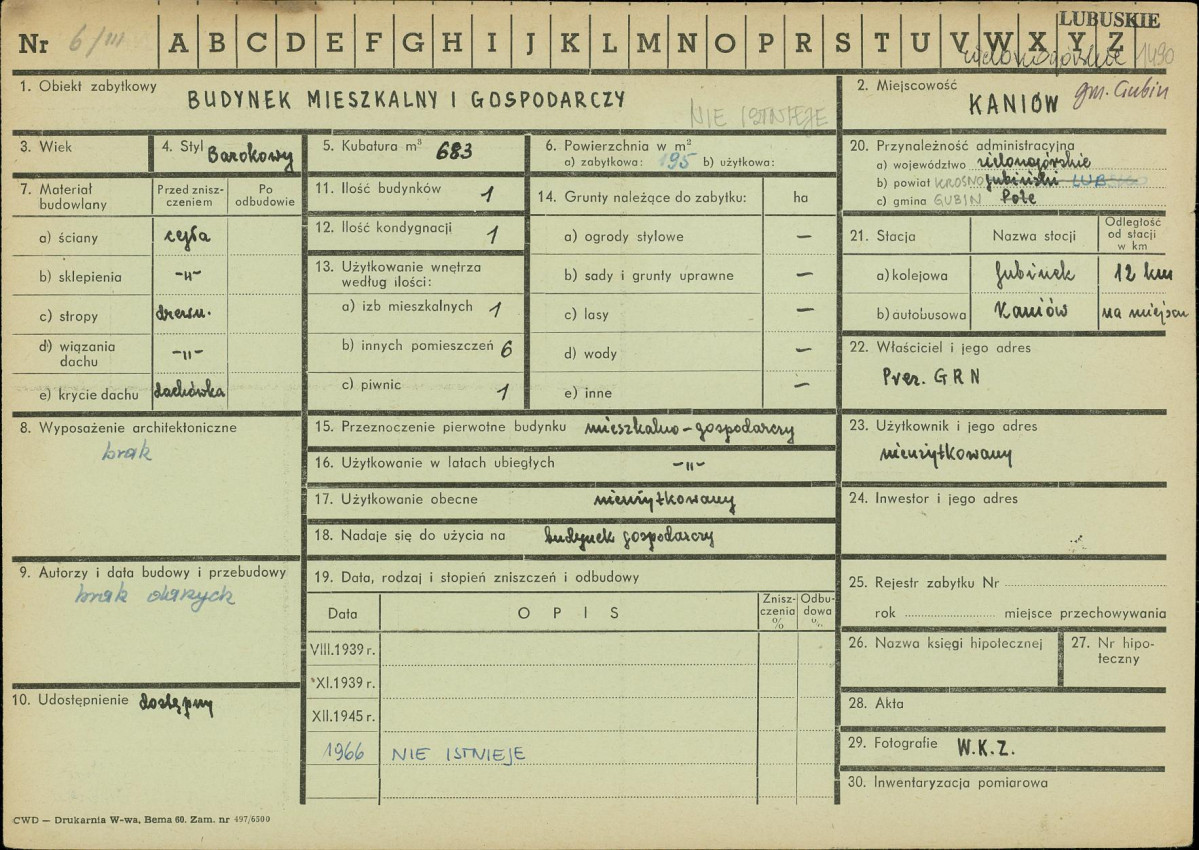 LUBUSKIE
Nr 6/III A B C D E F G H I J K L M N O P R S T U V W X Y Z
zielonogórskie 1490
1. Obiekt zabytkowy
BUDYNEK MIESZKALNY I GOSPODARCZY
NIE ISTNIEJE
2. Miejscowość
KANIÓW gm. Gubin
3. Wiek
4. Styl Barokowy
5. Kubatura m³ 683
6. Powierzchnia w m²
a) zabytkowa: 195 b) użytkowa:
20. Przynależność administracyjna
a) województwo zielonogórskie
b) powiat KROSNO gubiński
c) gmina GUBIN Pole
7. Materiał budowlany
Przed zniszczeniem
Po odbudowie
a) ściany cegła
b) sklepienia -"-
c) stropy drewn.
d) wiązania dachu -"-
e) krycie dachu dachówka
11. Ilość budynków 1
12. Ilość kondygnacji 1
13. Użytkowanie wnętrza według ilości:
a) izb mieszkalnych 1
b) innych pomieszczeń 6
c) piwnic 1
14. Grunty należące do zabytku: ha
a) ogrody stylowe —
b) sady i grunty uprawne —
c) lasy —
d) wody —
e) inne —
21. Stacja Nazwa stacji Odległość od stacji w km
a) kolejowa Gubinek 12 km
b) autobusowa Kaniów na miejscu
22. Właściciel i jego adres
Prez. GRN
8. Wyposażenie architektoniczne
brak
15. Przeznoczenie pierwotne budynku mieszkalno-gospodarczy
16. Użytkowanie w latach ubiegłych -"-
17. Użytkowanie obecne nieużytkowany
18. Nadaje się do użycia na budynek gospodarczy
23. Użytkownik i jego adres
nieużytkowany
24. Inwestor i jego adres
9. Autorzy i data budowy i przebudowy
brak danych
19. Data, rodzaj i stopień zniszczeń i odbudowy
Data O P I S Zniszczenia % Odbudowa %
VIII.1939 r.
XI.1939 r.
XII.1945 r.
1966 NIE ISTNIEJE
25. Rejestr zabytku Nr
rok miejsce przechowywania
26. Nazwa księgi hipotecznej
27. Nr hipoteczny
10. Udostępnienie dostępny
28. Akta
29. Fotografie W.K.Z.
30. Inwentaryzacja pomiarowa
CWD — Drukarnia W-wa, Bema 60. Zam. nr 497/6500